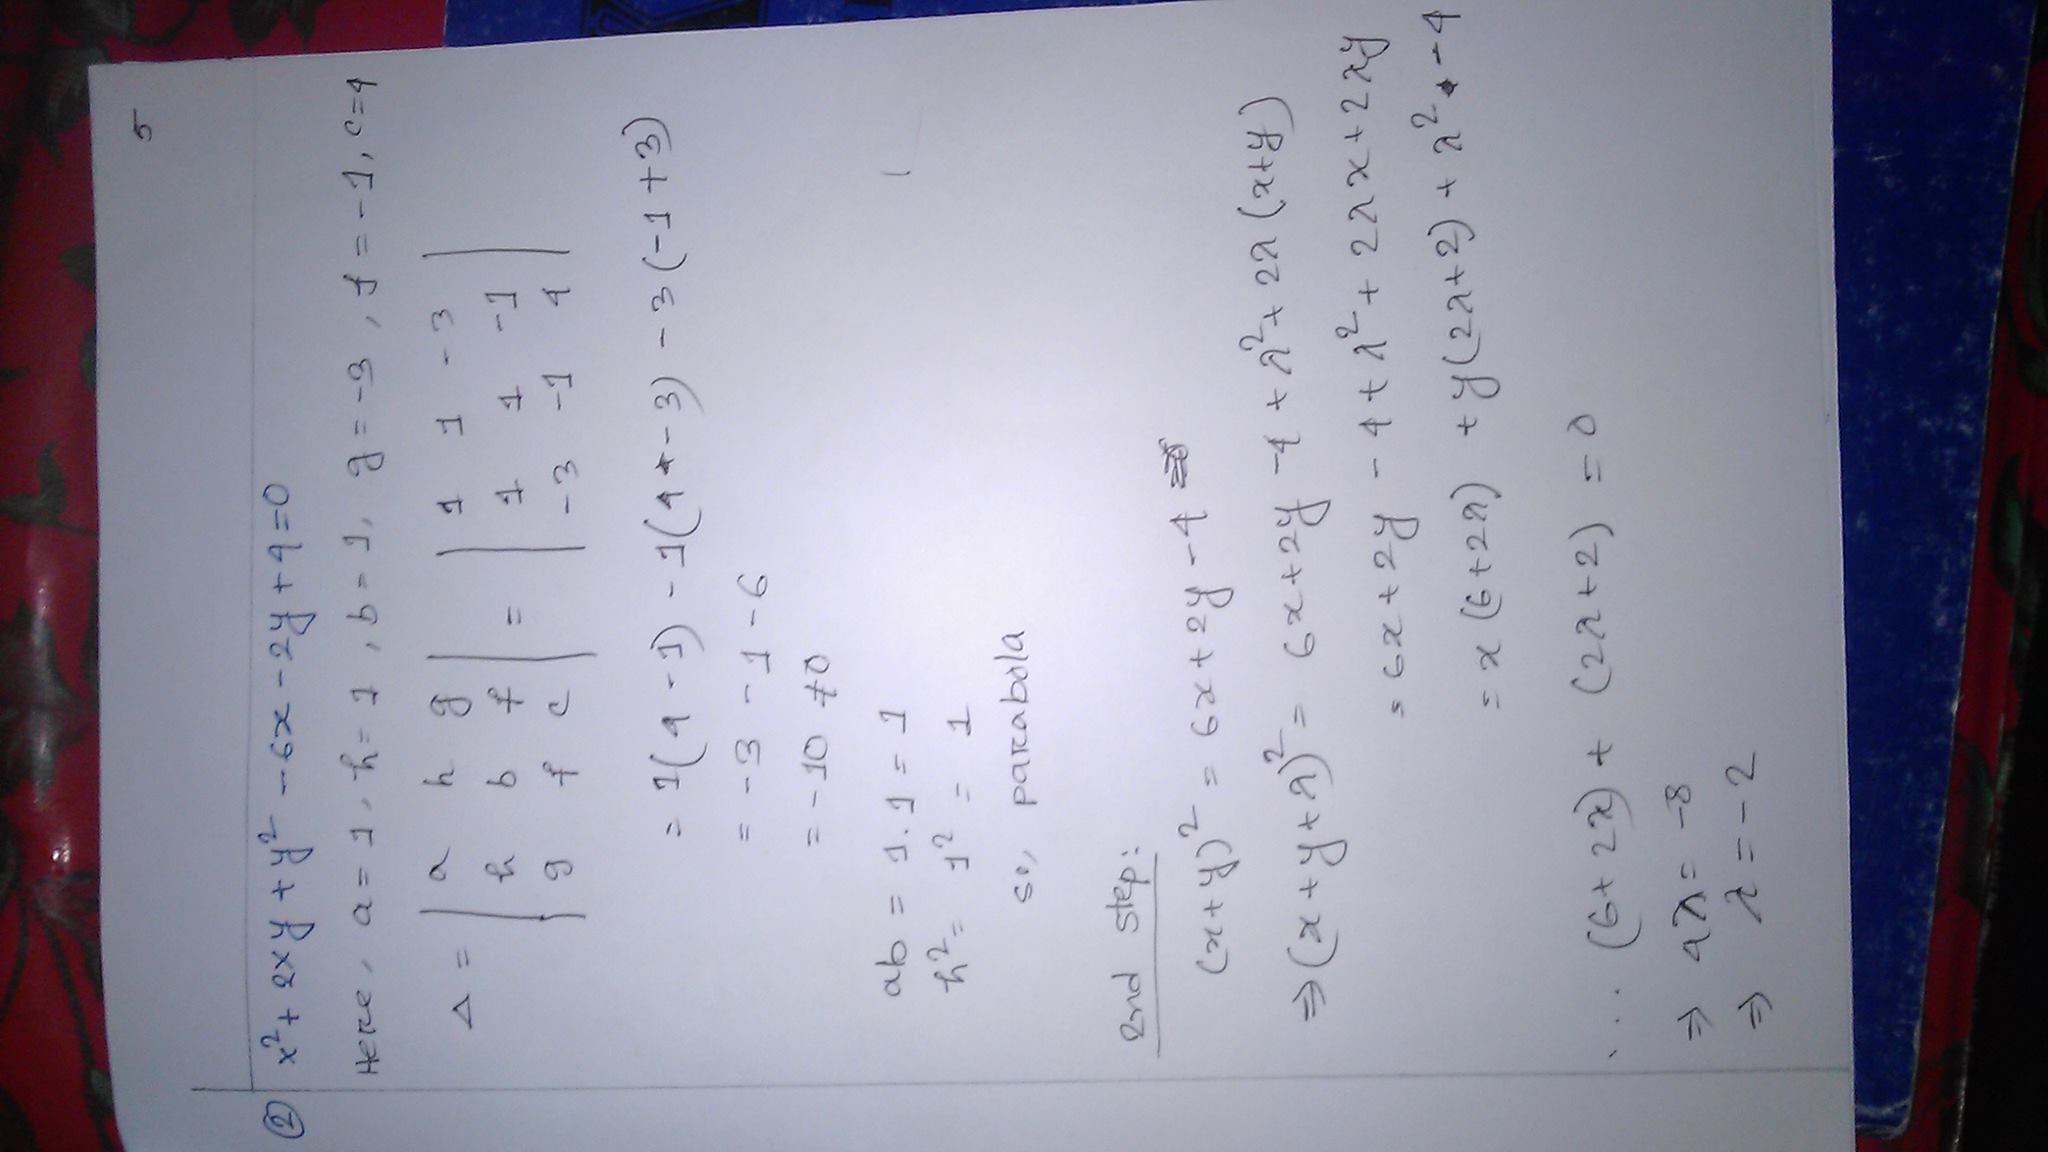 5
② x² + 2xy + y² - 6x - 2y + 4 = 0
Here, a = 1, h = 1, b = 1, g = -3, f = -1, c = 4
Δ = | a h g | = | 1 1 -3 |
| h b f | | 1 1 -1 |
| g f c | | -3 -1 4 |
= 1(4 - 1) - 1(4 - 3) - 3(-1 + 3)
= -3 - 1 - 6
= -10 ≠ 0
ab = 1.1 = 1
h² = 1² = 1
so, parabola
2nd step:
(x+y)² = 6x + 2y - 4
⇒ (x + y + λ)² = 6x + 2y - 4 + λ² + 2λ(x+y)
= 6x + 2y - 4 + λ² + 2λx + 2λy
= x(6 + 2λ) + y(2λ+2) + λ² - 4
∴ (6 + 2λ) + (2λ + 2) = 0
⇒ 4λ = -8
⇒ λ = -2